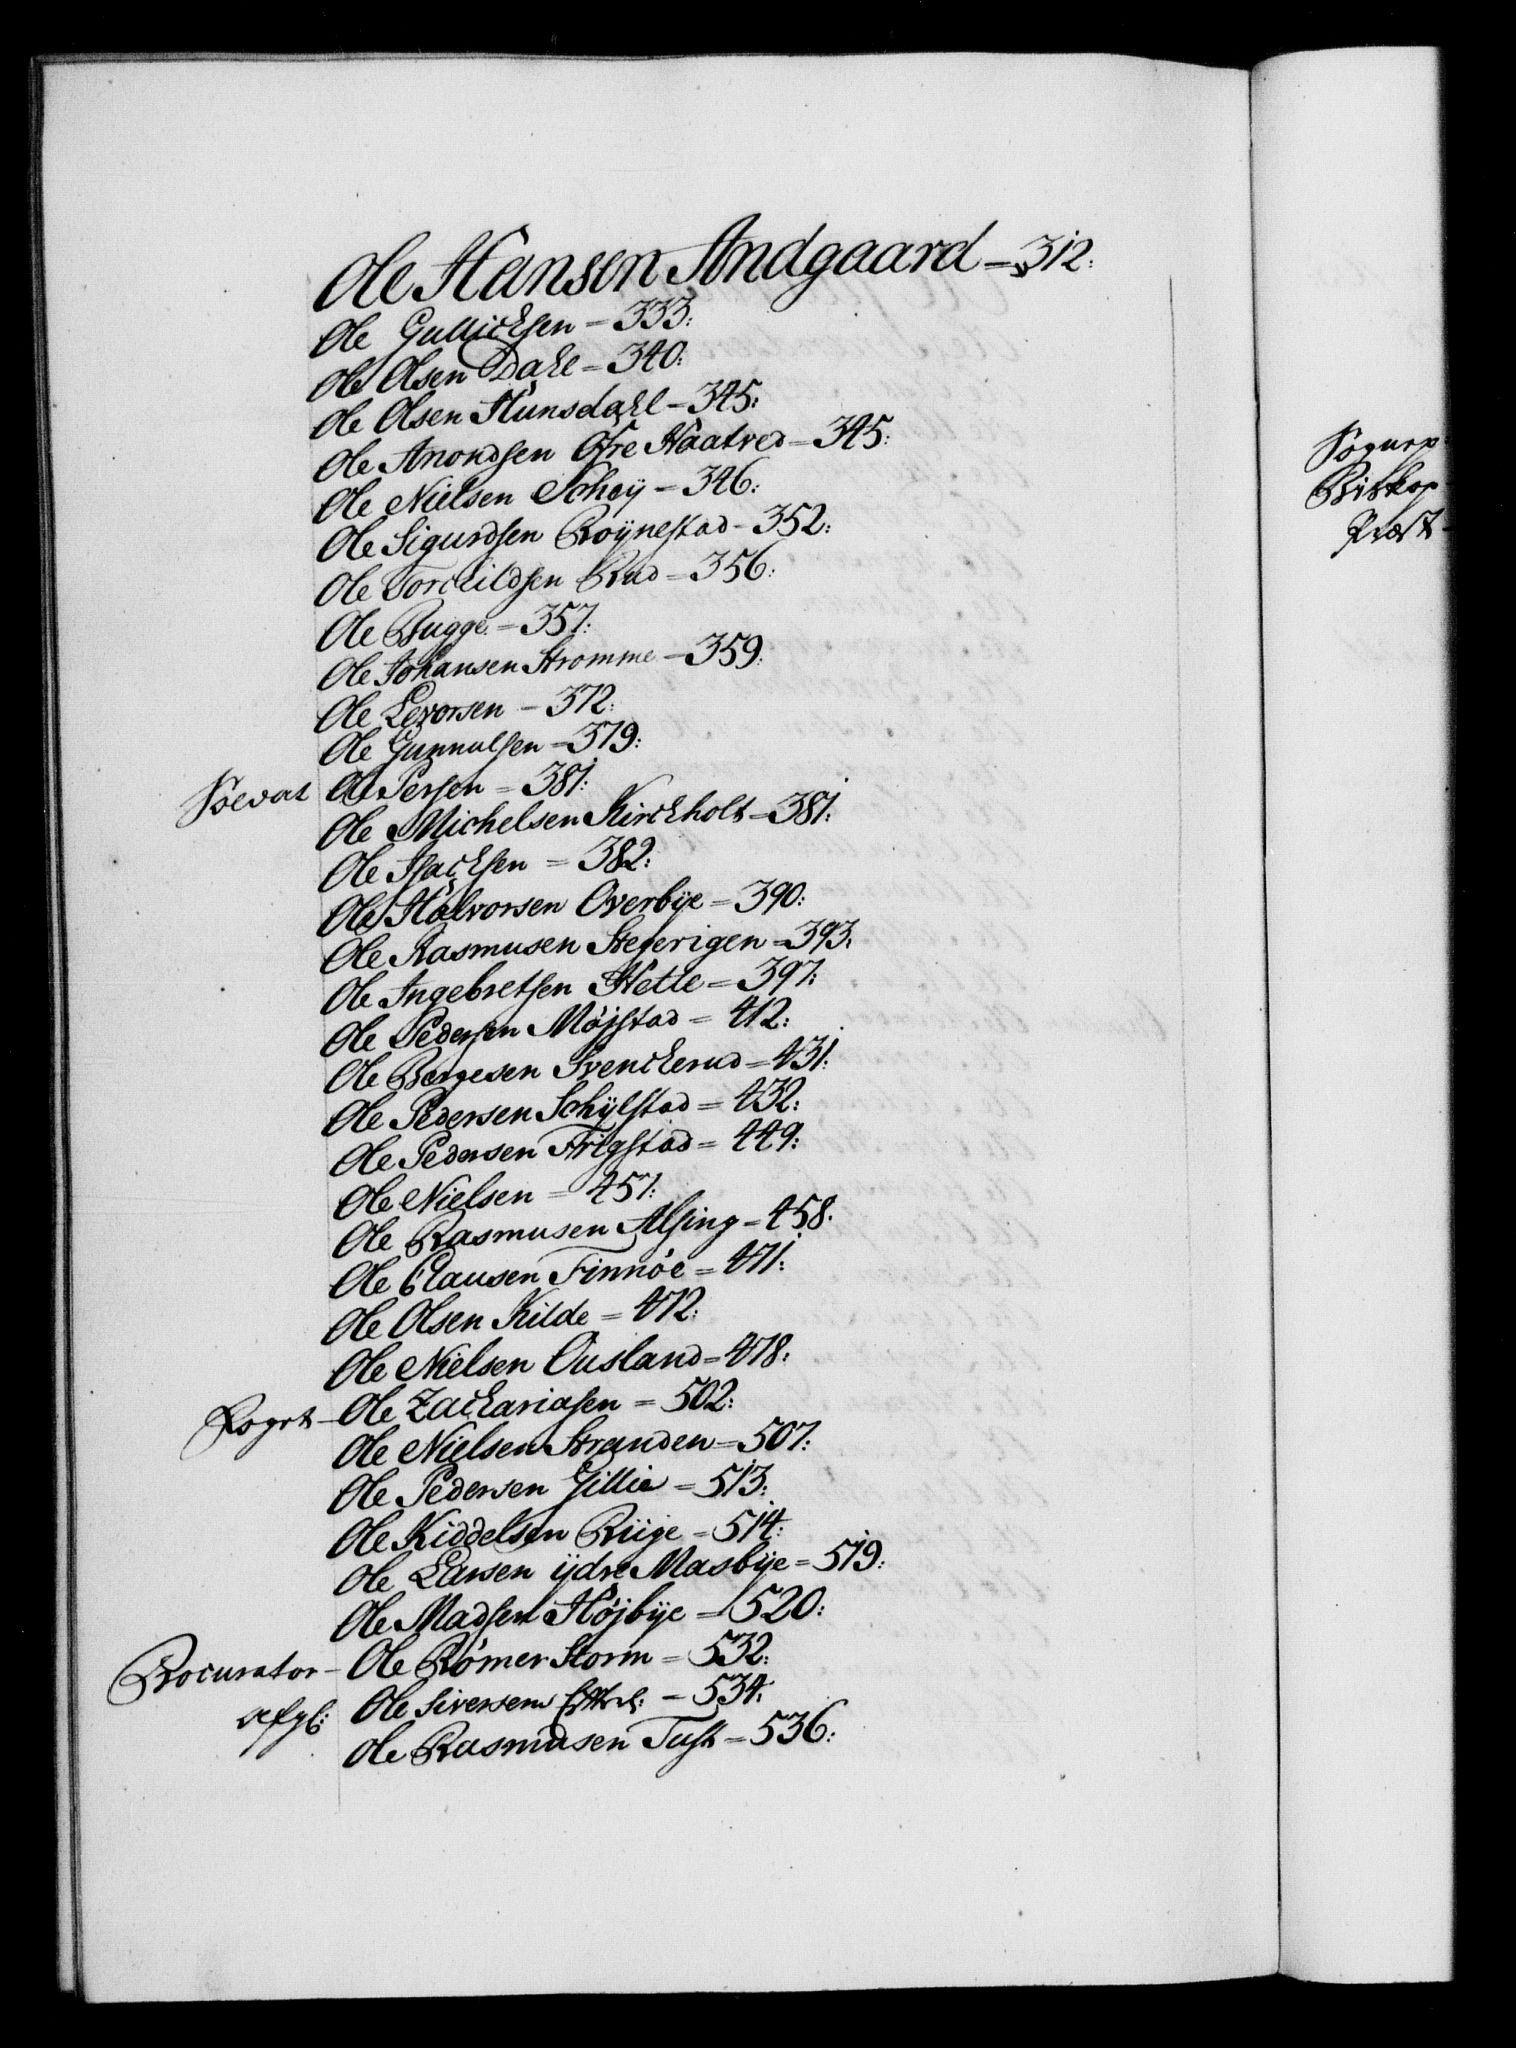 Ole Hansen Andgaard = 312:
Ole Gullichsen = 333:
Ole Olsen Dahl = 340:
Ole Olsen Hunsdahl = 345:
Ole Anondsen Øfre Haatved = 345:
Ole Nielsen Schøÿ = 346:
Ole Sigurdsen Røÿnestad = 352:
Ole Torchildsen Rud = 356:
Ole Bugge = 357:
Ole Johansen Strømme = 359:
Ole Levorsen = 372:
Ole Gunnulsen = 379:
Ole Persen = 381:
Ole Michelsen Kirckholt = 381:
Ole Isachsen = 382:
Ole Halvorsen Overbÿe = 390:
Ole Rasmusen = 393:
Ole Ingebretsen Helle = 397:
Ole Pedersen Møjstad = 412:
Ole Børgesen Svenckerud = 431:
Ole Pedersen Schÿlstad = 432:
Ole Pedersen Frigstad = 449:
Ole Nielsen = 451:
Ole Rasmusen Alsing = 458.
Ole Clausen Finnøe = 471:
Ole Olsen Kilde = 472:
Ole Nielsen Ousland = 478:
Foget - Ole Zachariasen = 502:
Ole Nielsen Stranden = 507:
Ole Pedersen Gillie = 513:
Ole Kiddelsen Riige = 514:
Ole Larsen ÿdre Masbÿe = 519:
Ole Madsen Højbÿe = 520:
Procurator - Ole Rømer Storm = 532:
afgl: Ole Siversens = 534:
Ole Rasmusen Tush = 536:
Sognep:
Biskop
Præst